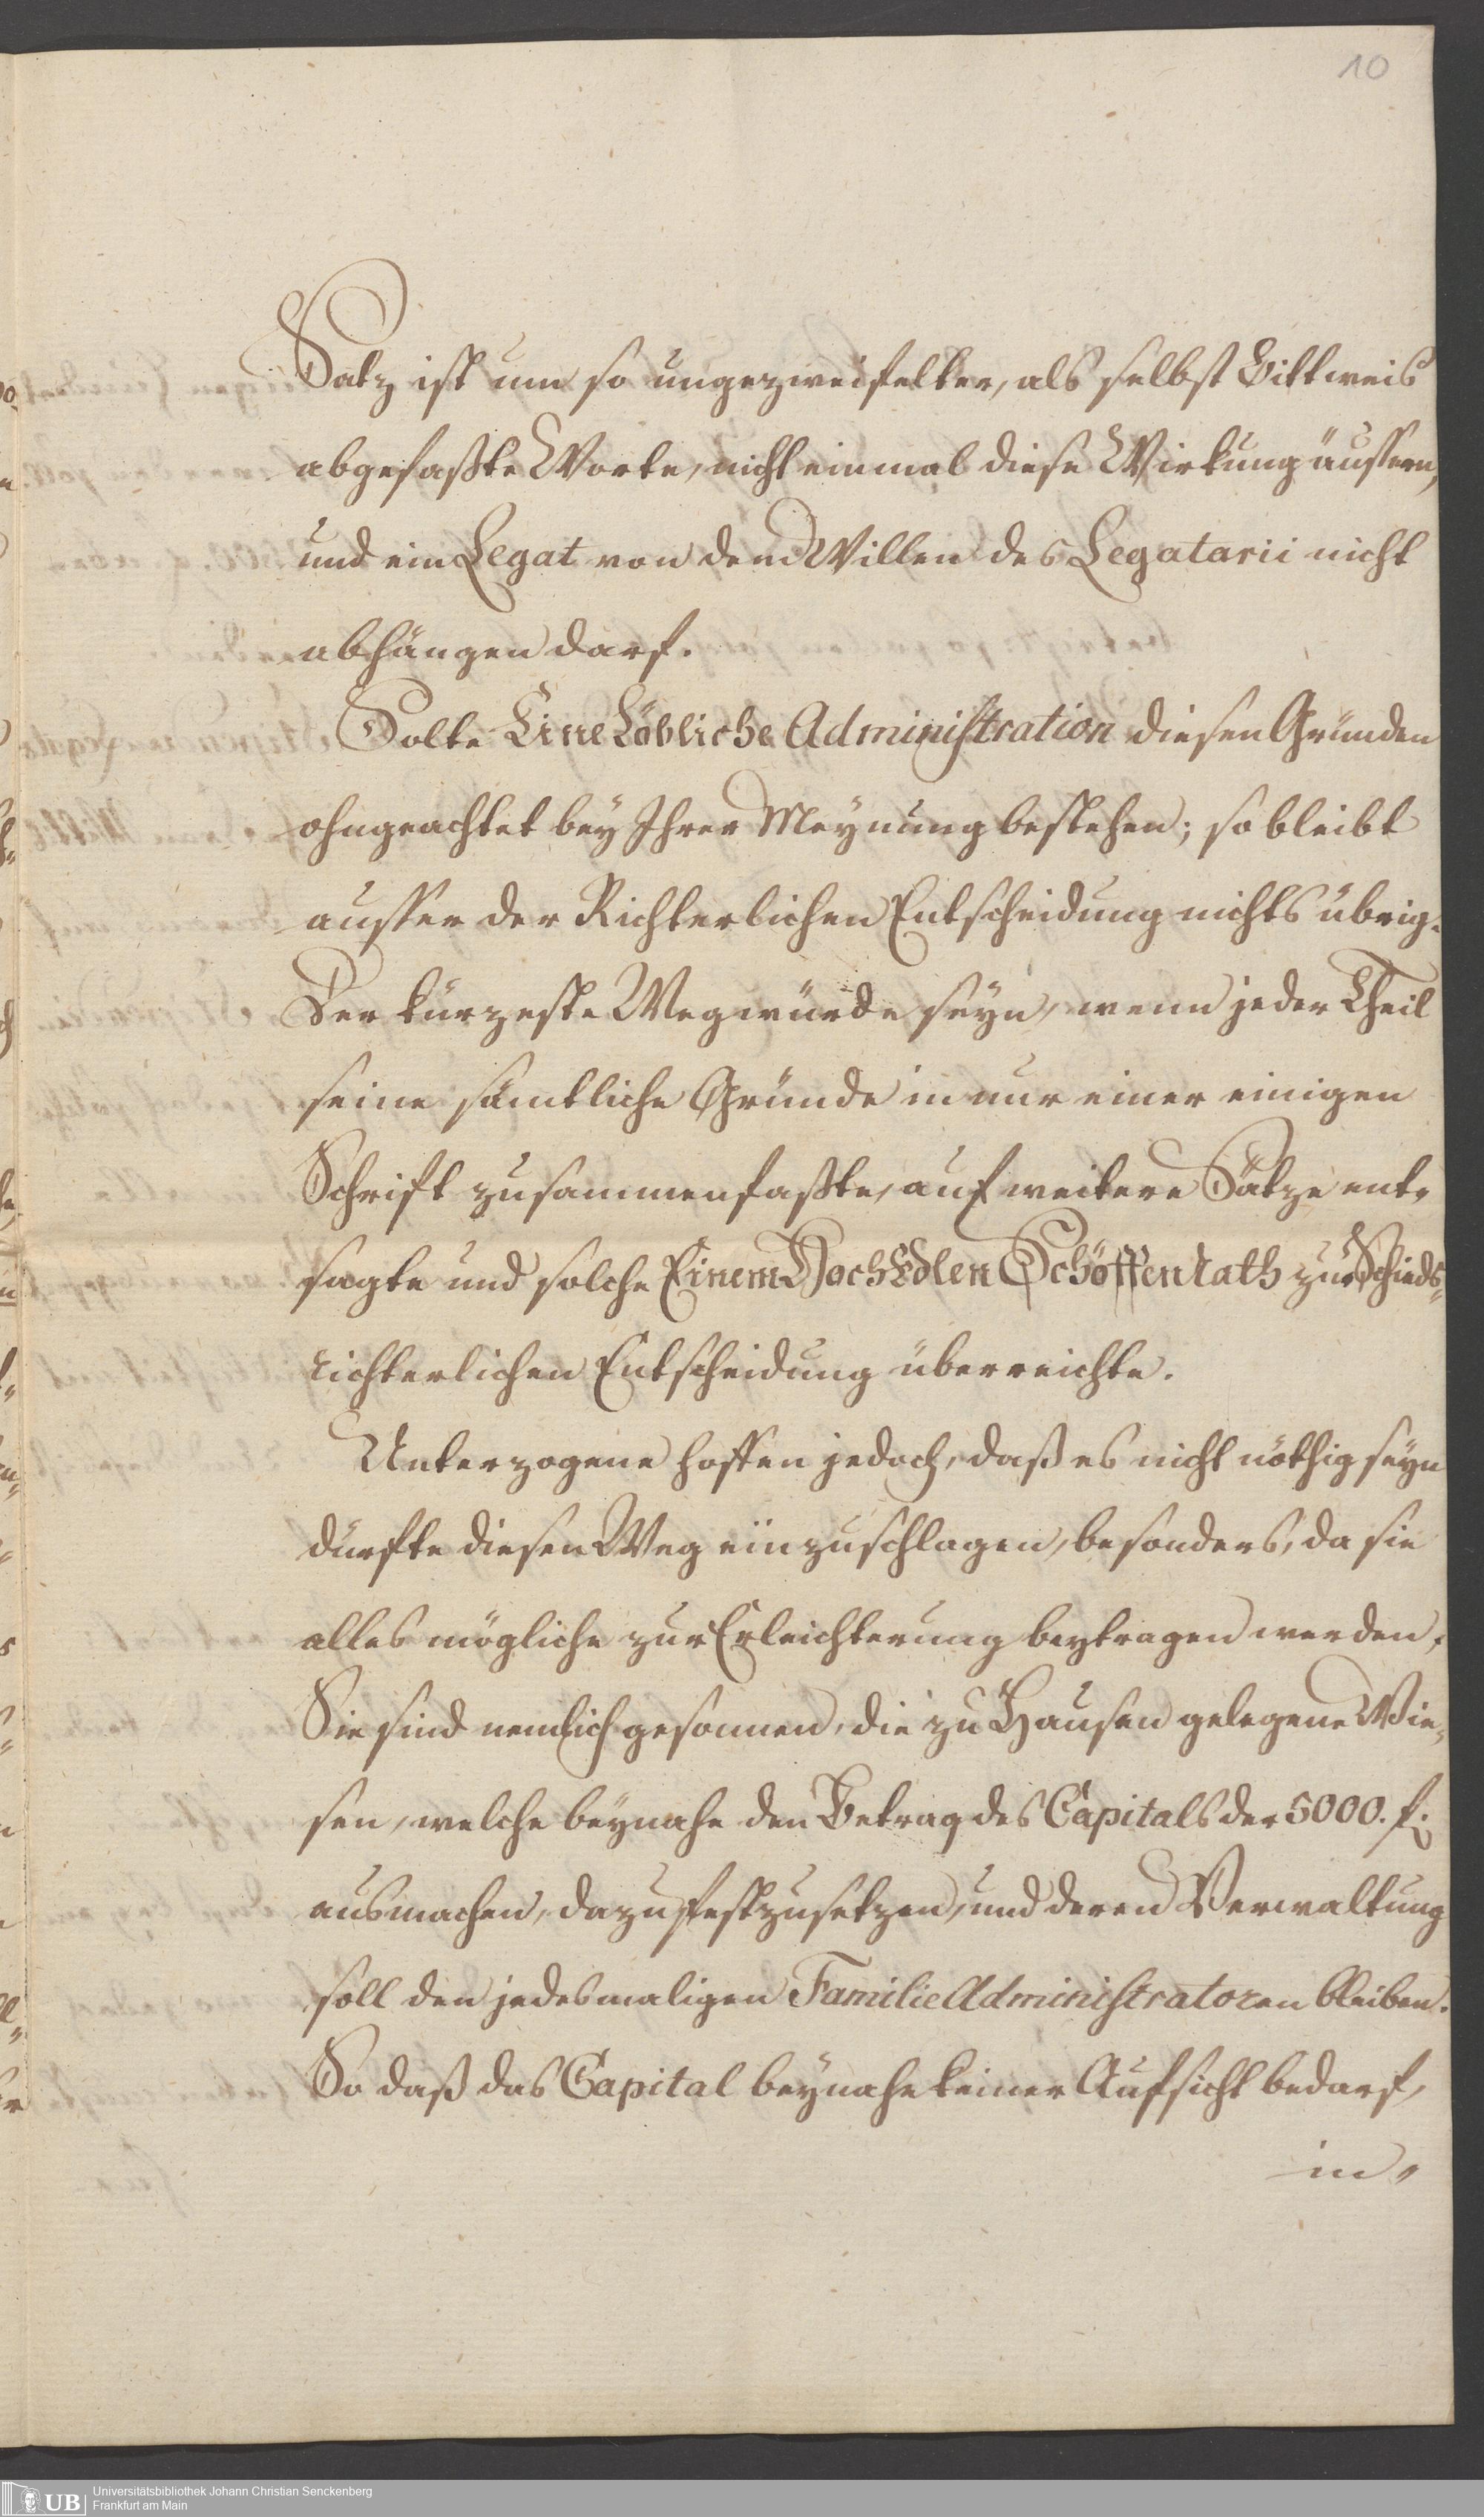 10
Satz ist um so ungezweifelter, als selbst Bittweis
abgefaßte Worte, nicht einmal diese Wirkung äussern,
und ein Legat von dem Willen des Legatarii nicht
abhängen darf.
Solte Eine Löbliche Administration diesen Gründen
ohngeachtet bey Ihrer Meynung bestehen; so bleibt
ausser der Richterlichen Entscheidung nichts übrig.
Der kürzeste Weg würde seyn, wenn jeder Theil
seine sämtliche Gründe in nur einer einigen
Schrift zusammenfaßte, auf weitere Sätze ent-
sagte und solche Einem HochEdlen Schöffenrath zur Schieds-
richterlichen Entscheidung überreichte.
Unterzogene hoffen jedoch, daß es nicht nöthig seyn
dürfte diesen Weg einzuschlagen, besonders, da sie
alles mögliche zur Erleichterung beytragen werden.
Sie sind nemlich gesonnen, die zu Hausen gelegene Wie-
sen, welche beynahe den Betrag des Capitals der 5000. f.
ausmachen, dazu festzusetzen, und deren Verwaltung
soll den jedesmaligen Familie Administratoren bleiben.
So daß das Capital beynahe keiner Aufsicht bedarf,
in-
UB
Universitätsbibliothek Johann Christian Senckenberg
Frankfurt am Main